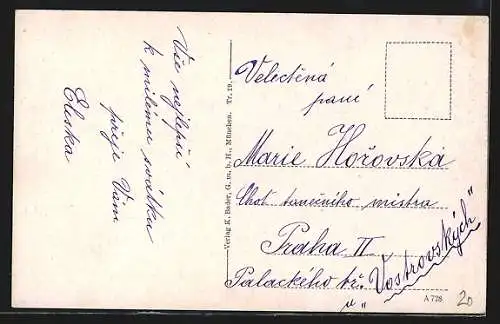 Vše nejlepší
k milému svátku
přeje Vám
Eliška
Verlag K. Bader, G. m. b. H., München. Tr. 19.
Velectěná
paní
Marie Hořovská
Chot tanečního mistra
Praha II
Palackého tř.
u „Vostrovských"
A 728
20